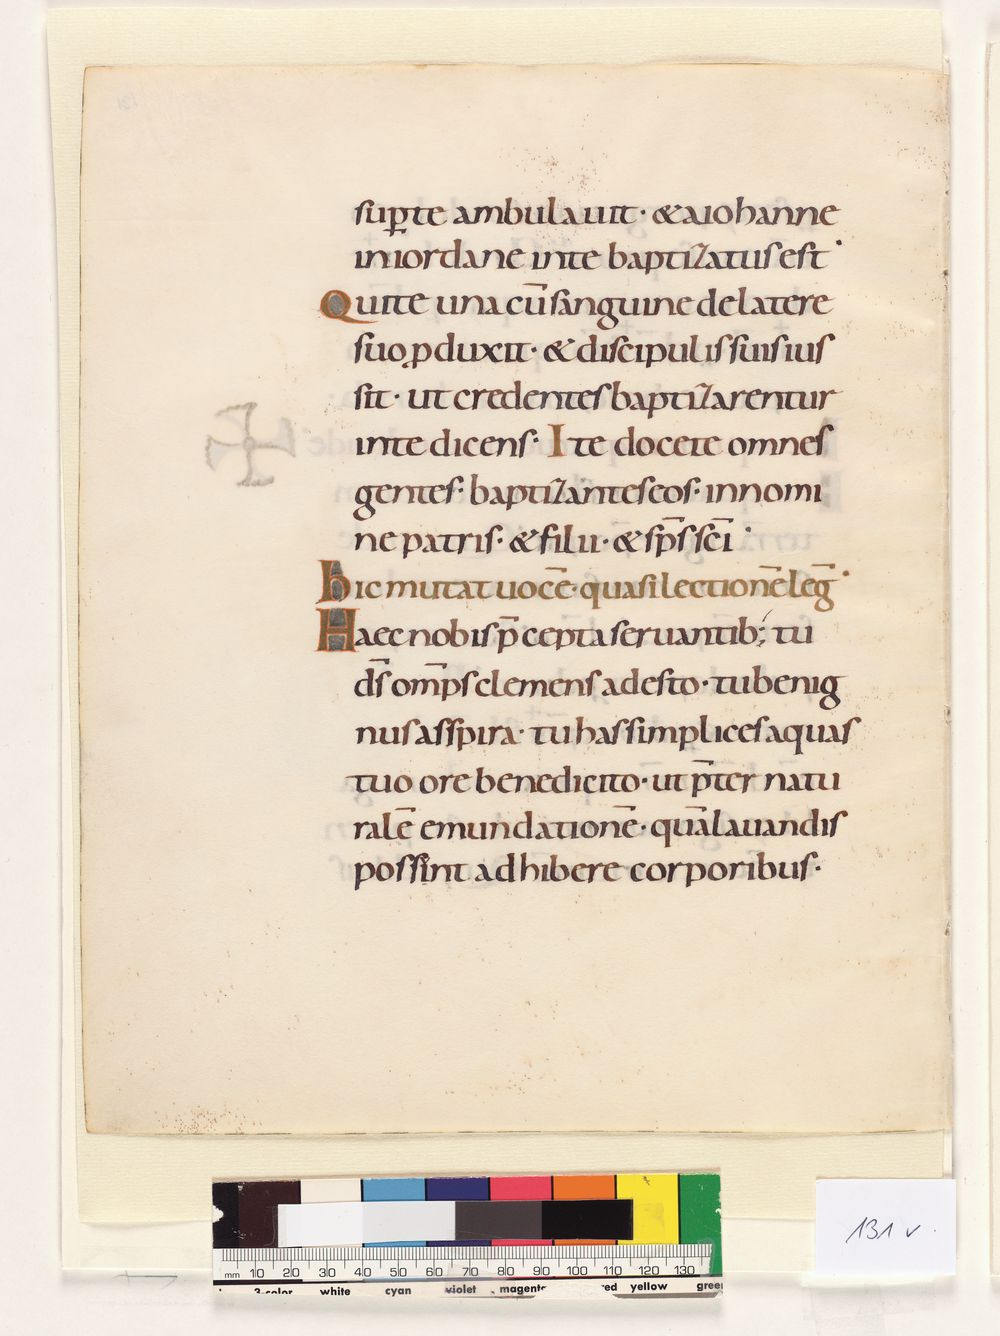 sup̱te ambulauit· &aiohanne
iniordane inte baptizatusest·
Quite una cū sanguine delatere
suo ꝓduxit· &discipulis suis ius
sit· ut credentes baptizarentur
inte dicens· Ite docete omnes
gentes· baptizantes eos· innomi
ne patris· & filii· & sp̄s sc̄i·
hic mutat uocē· quasi lectionē leḡ·
Haec nobis p̄cepta seruantib; tu
d̄s om̄ps clemens adesto· tu benig
nus asspira· tu has simplices aquas
tuo ore benedicito· ut p̄ter natu
ralē emundationē· quā lauandis
possint adhibere corporibus·
131 v.
mm 10 20 30 40 50 60 70 80 90 100 110 120 130
3-color white cyan violet magenta red yellow green